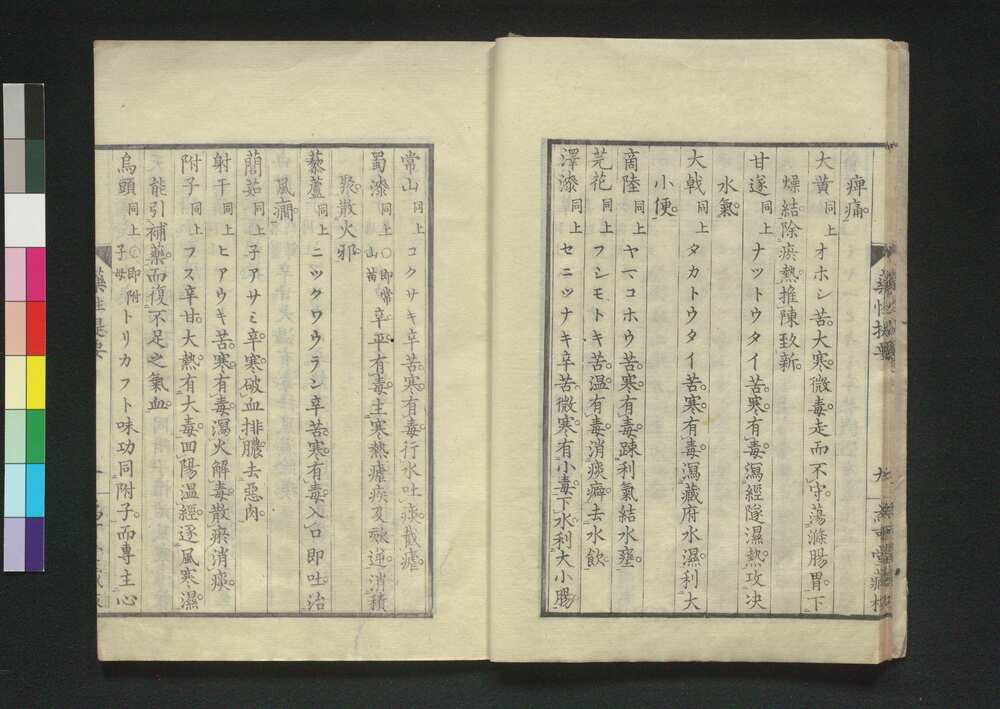 痺痛。
大黃 同上 オホシ 苦。大寒。微毒。走而不守。蕩滌腸胃。下
燥結。除瘀熱。推陳致新。
甘遂 同上 ナツトウタイ 苦。寒。有毒。瀉經隧濕熱。攻决
水氣。
大戟 同上 タカトウタイ 苦。寒。有毒。瀉藏府水濕。利大
小便。
商陸 同上 ヤマコホウ 苦。寒。有毒。疎利氣結水壅。
芫花 同上 フシモトキ 苦。溫。有毒。消痰癖。去水飲。
澤漆 同上 セニツナキ 辛苦。微寒。有小毒。下水。利大小腸。
藥性提要 九
常山 同上 コクサキ 辛苦。寒。有毒。行水。吐痰。截瘧。
蜀漆 同上 ○即常山苗 辛平。有毒。主寒熱瘧疾。欬逆。消積
聚。散火邪。
藜蘆 同上 ニツクワウラン 辛苦。寒。有毒。入口即吐。治
風癎。
藺茹 同上 子アサミ 辛。寒。破血。排膿。去惡肉。
射干 同上 ヒアウキ 苦。寒。有毒。瀉火。解毒。散瘀。消痰。
附子 同上 フス 辛甘。大熱。有大毒。回陽溫經。逐風寒濕。
能引補藥而復不足之氣血。
烏頭 同上 ○即附子母 トリカフト 味功同附子。而專主心
藥性提要